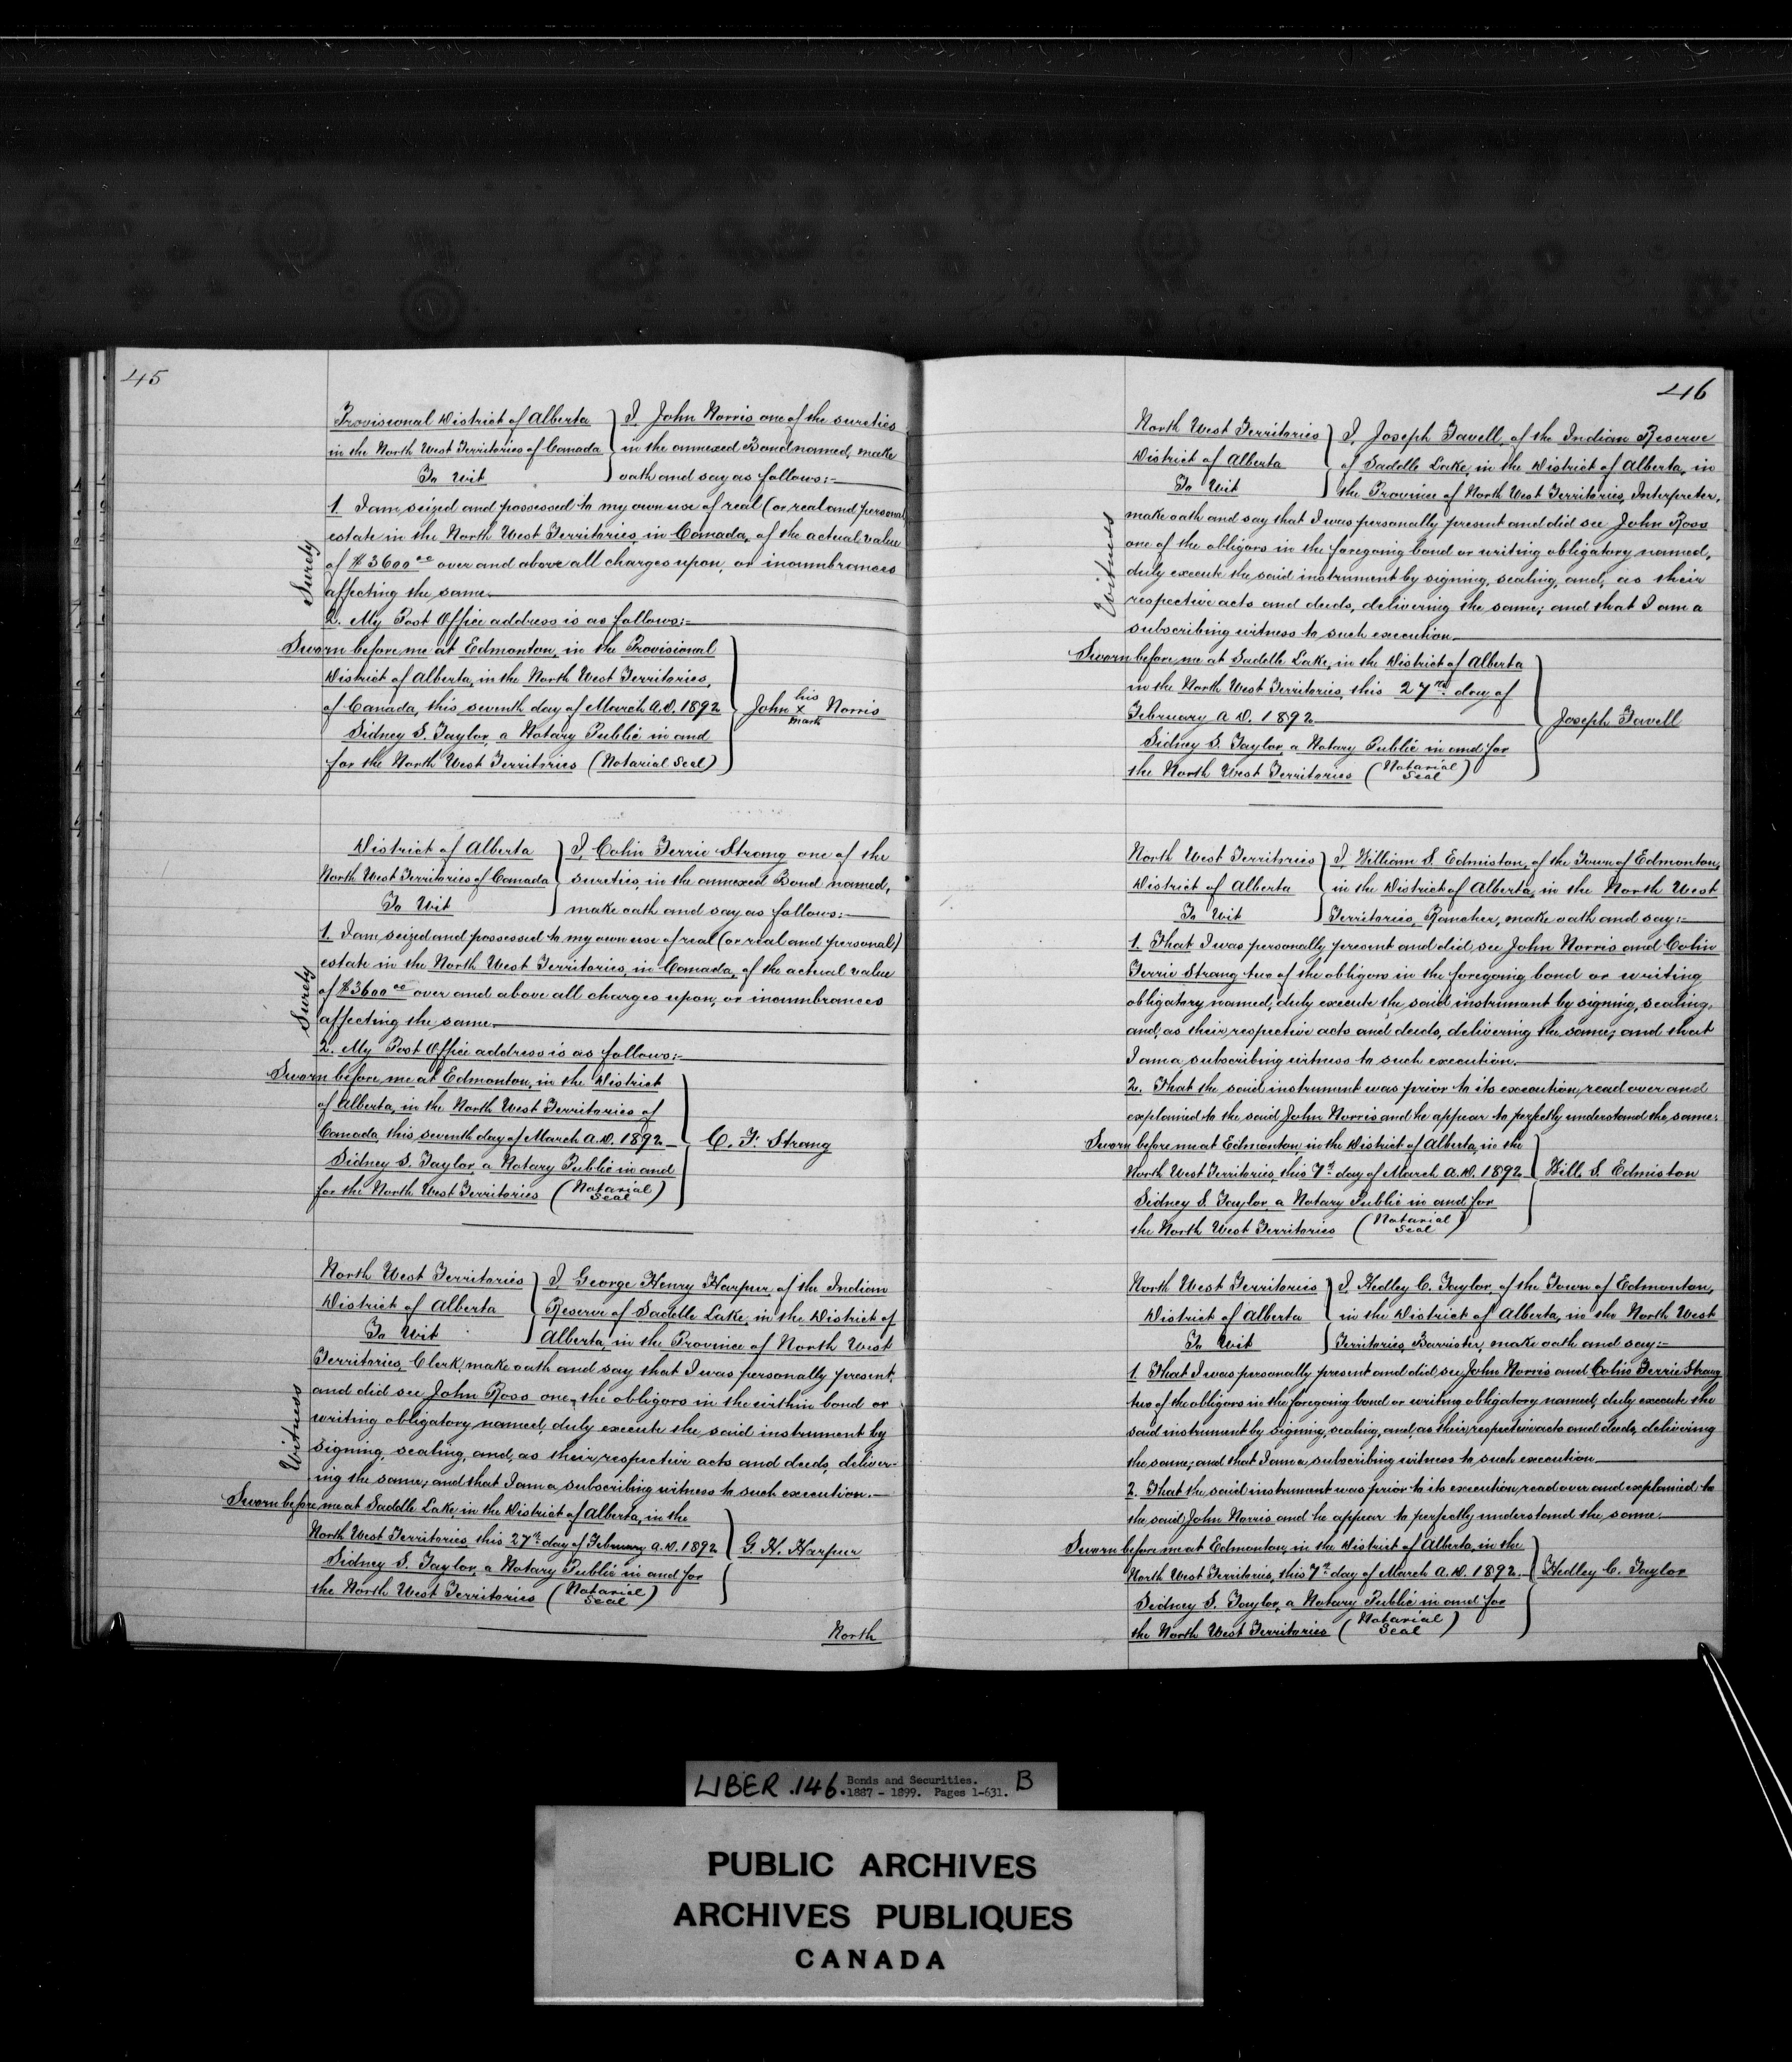 45
Provisional District of Alberta } I, John Norris one of the sureties
in the North West Territories of Canada } in the annexed Bond named, make
To Wit } oath and say as follows:-
1. I am seized and possessed to my own use of real (or real and personal
estate in the North West Territories, in Canada, of the actual value
of $3600 00 over and above all charges upon, or incumbrances
affecting the same.
2. My Post Office address is as follows:-
Surety
Sworn before me at Edmonton, in the Provisional
District of Alberta, in the North West Territories,
of Canada, this seventh day of March A.D. 1892 } John his X mark Norris
Sidney S. Taylor, a Notary Public in and
for the North West Territories (Notarial Seal)
District of Alberta } I, Colin Ferrie Strang one of the
North West Territories of Canada } sureties, in the annexed Bond named,
To Wit } make oath and say as follows:-
1. I am seized and possessed to my own use of real (or real and personal)
estate in the North West Territories, in Canada, of the actual value
of $3600 00 over and above all charges upon, or incumbrances
affecting the same.
2. My Post Office address is as follows:-
Surety
Sworn before me at Edmonton, in the District
of Alberta, in the North West Territories of
Canada, this seventh day of March A.D. 1892 } C. F. Strang
Sidney S. Taylor, a Notary Public in and
for the North West Territories (Notarial Seal)
North West Territories } I, George Henry Harpur, of the Indian
District of Alberta } Reserve of Saddle Lake, in the District of
To Wit } Alberta, in the Province of North West
Territories, Clerk, make oath and say that I was personally present,
and did see John Ross one, the obligors in the within bond or
writing obligatory named, duly execute the said instrument by
signing, sealing, and, as their respective acts and deeds, deliver-
ing the same; and that I am a subscribing witness to such execution.
Witness
Sworn before me at Saddle Lake, in the District of Alberta, in the
North West Territories, this 27th day of February A.D. 1892 } G. H. Harpur
Sidney S. Taylor, a Notary Public in and for
the North West Territories (Notarial Seal)
North
46
North West Territories } I, Joseph Favell, of the Indian Reserve
District of Alberta } of Saddle Lake, in the District of Alberta, in
To Wit } the Province of North West Territories, Interpreter,
make oath and say that I was personally present and did see John Ross
one of the obligors in the foregoing bond or writing obligatory named,
duly execute the said instrument by signing, sealing, and, as their
respective acts and deeds, delivering the same; and that I am a
subscribing witness to such execution.
Witness
Sworn before me at Saddle Lake, in the District of Alberta
in the North West Territories, this 27th day of
February A.D. 1892 } Joseph Favell
Sidney S. Taylor, a Notary Public in and for
the North West Territories (Notarial Seal)
North West Territories } I, William S. Edmiston, of the Town of Edmonton,
District of Alberta } in the District of Alberta, in the North West
To Wit } Territories, Rancher, make oath and say:-
1. That I was personally present and did see John Norris and Colin
Ferrie Strang two of the obligors in the foregoing bond or writing
obligatory named, duly execute the said instrument by signing, sealing,
and, as their respective acts and deeds, delivering the same; and that
I am a subscribing witness to such execution.
2. That the said instrument was prior to its execution, read over and
explained to the said John Norris and he appear to perfectly understand the same.
Sworn before me at Edmonton, in the District of Alberta, in the
North West Territories, this 7th day of March A.D. 1892 } Will. S. Edmiston
Sidney S. Taylor, a Notary Public in and for
the North West Territories (Notarial Seal)
North West Territories } I, Hedley C. Taylor, of the Town of Edmonton,
District of Alberta } in the District of Alberta, in the North West
To Wit } Territories, Barrister, make oath and say:-
1. That I was personally present and did see John Norris and Colin Ferrie Strang
two of the obligors in the foregoing bond or writing obligatory named, duly execute the
said instrument by signing, sealing, and, as their respective acts and deeds, delivering
the same; and that I am a subscribing witness to such execution.
2. That the said instrument was prior to its execution, read over and explained to
the said John Norris and he appear to perfectly understand the same.
Sworn before me at Edmonton, in the District of Alberta, in the
North West Territories, this 7th day of March A.D. 1892. } Hedley C. Taylor
Sidney S. Taylor, a Notary Public in and for
the North West Territories (Notarial Seal)
LIBER .146. Bonds and Securities. B
1887 - 1899. Pages 1-631.
PUBLIC ARCHIVES
ARCHIVES PUBLIQUES
CANADA